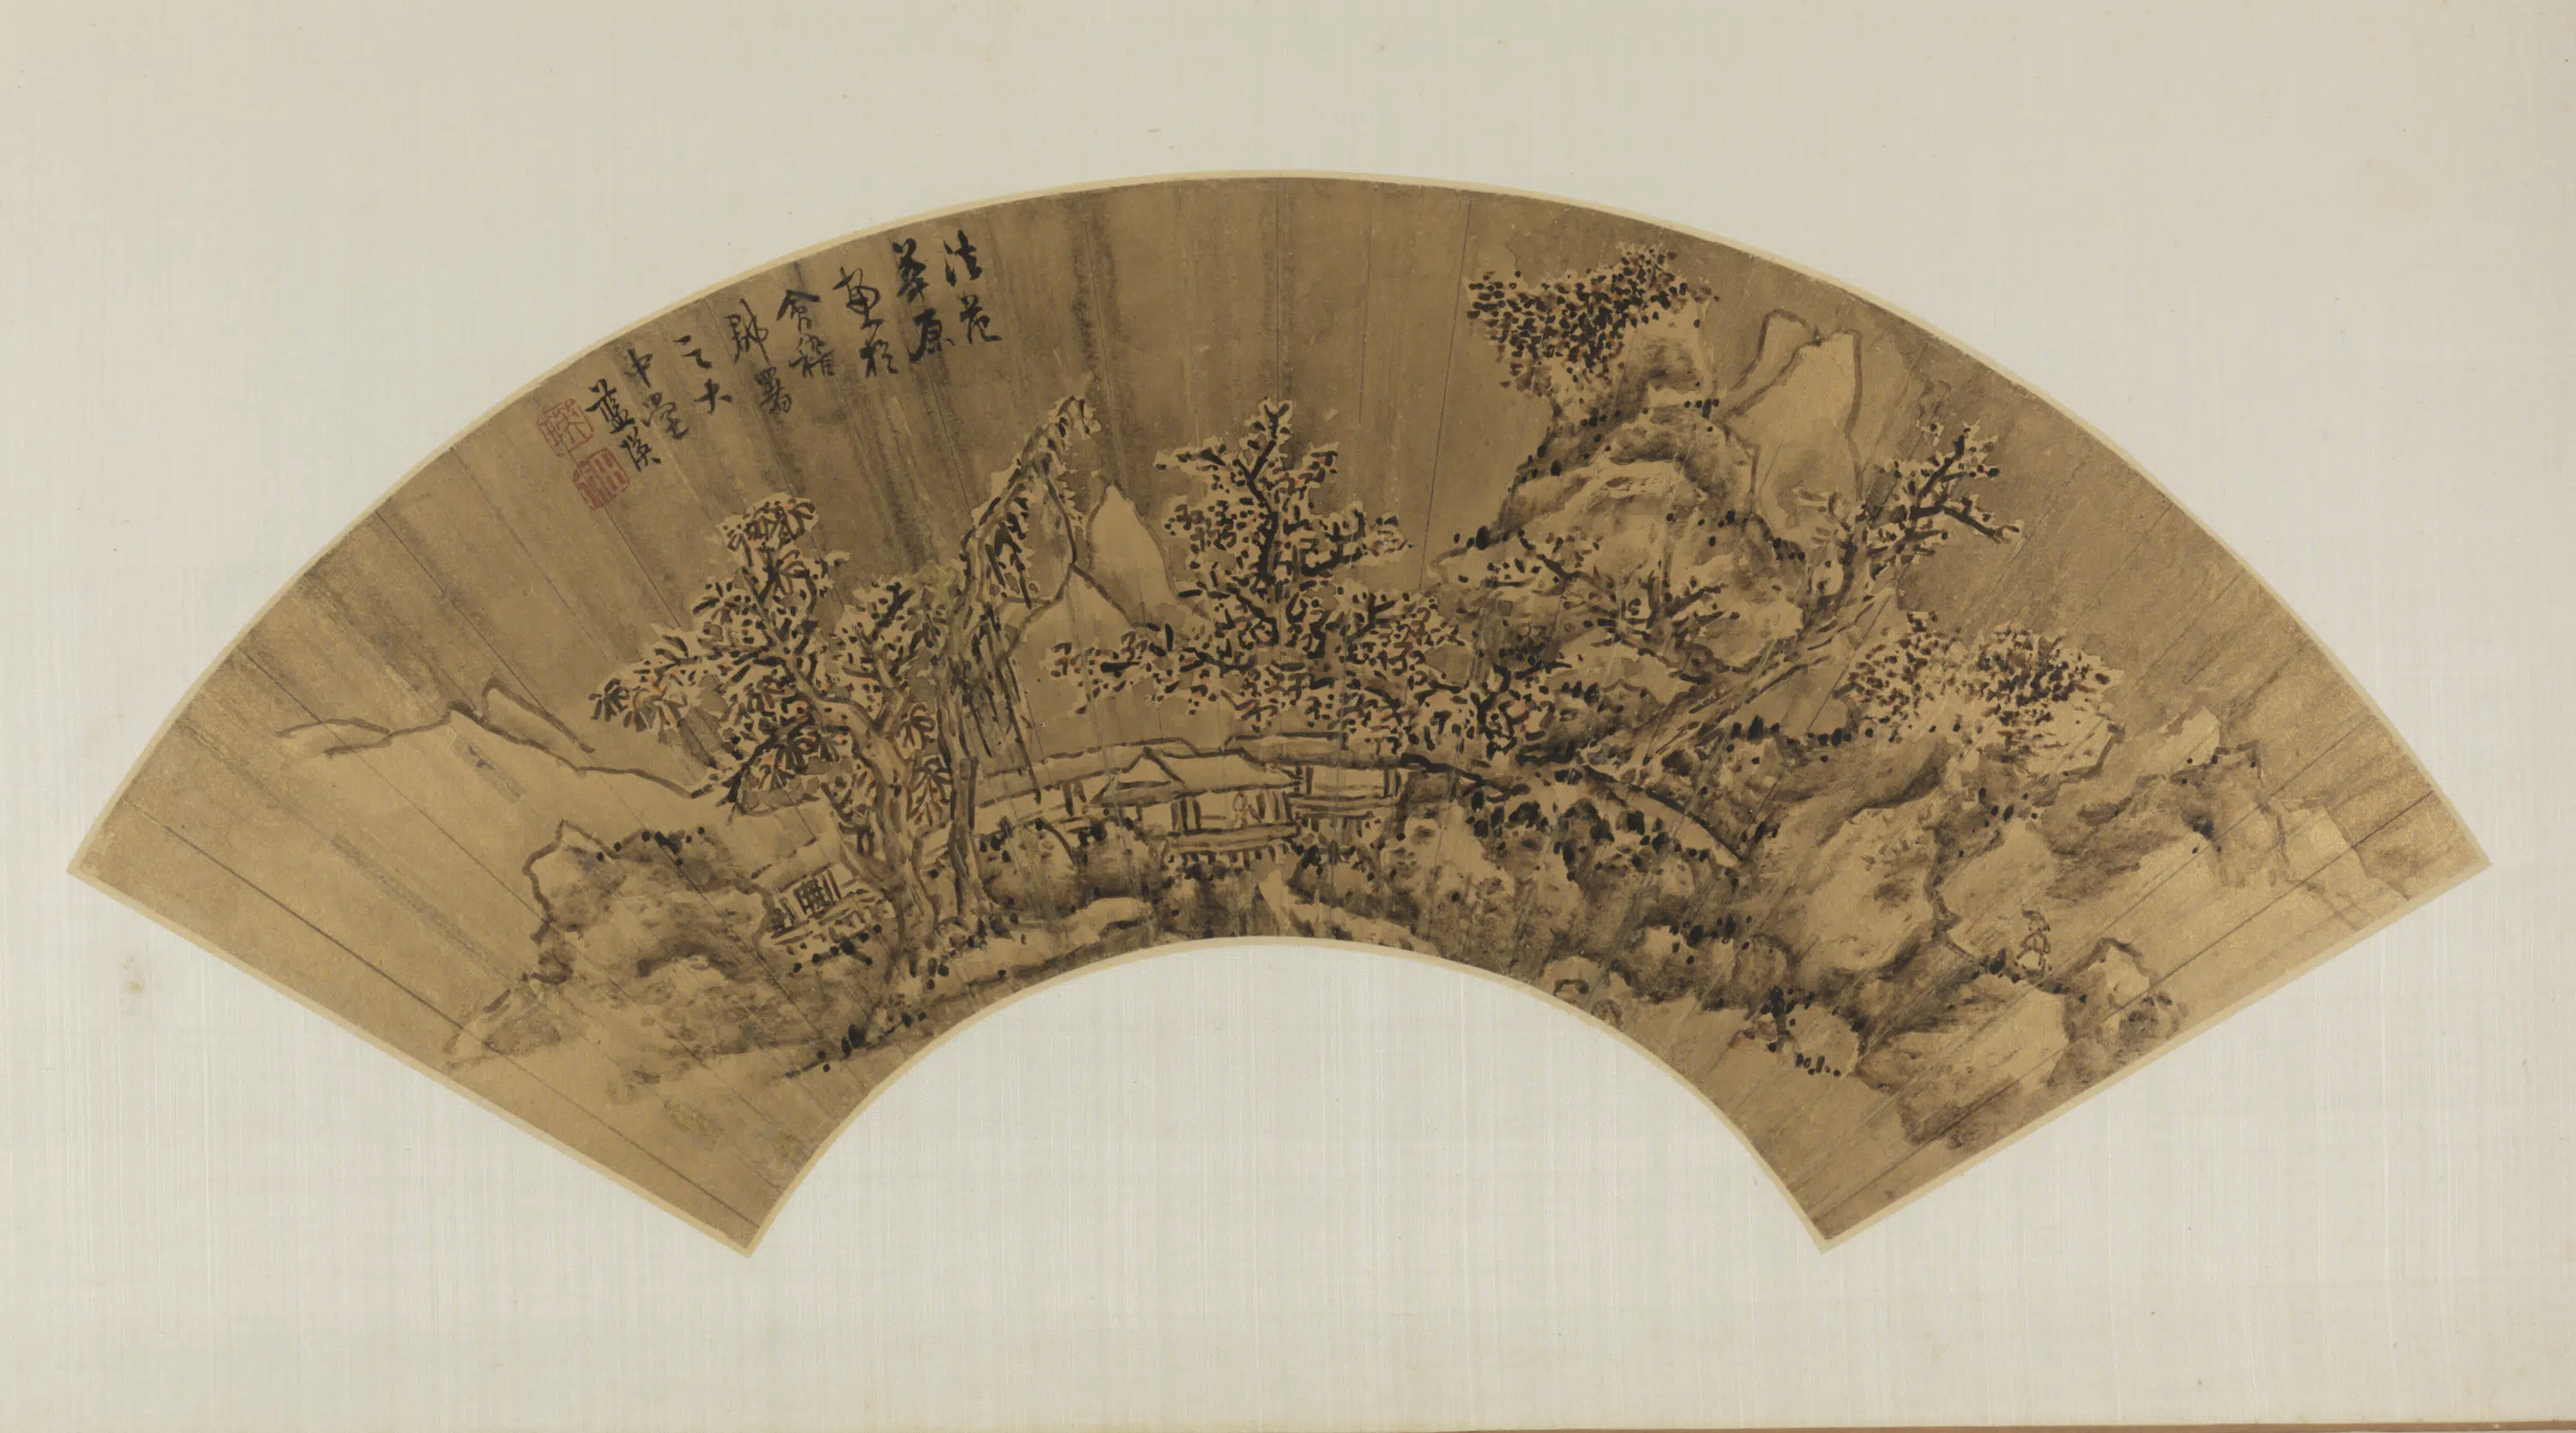 法范
華原
畫於
會稽
郡署
之大
中堂
藍瑛